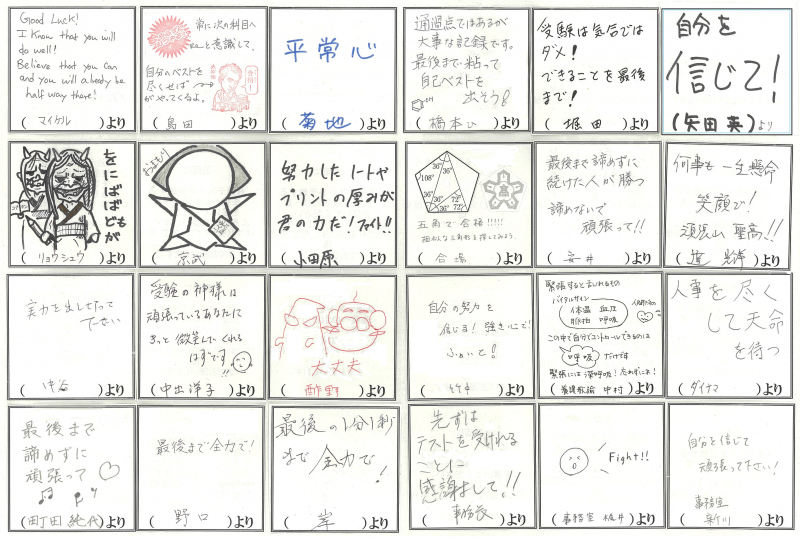 Good Luck!
I know that you will
do well!
Believe that you can
and you will already be
half way there!
(マイケル)より
常に次の科目へ
と意識して、
自分のベストを
尽くせば
がやってくるよ。
(島田)より
平常心
(菊地)より
通過点ではあるが
大事な記録です。
最後まで粘って
自己ベストを
出そう!
(橋本ひ)より
受験は気合では
ダメ!
できることを最後
まで!
(堀田)より
自分を
信じて!
(矢田英)より
をにばばども
が
(リョウシュウ)より
おまもり
(京武)より
努力したノートや
プリントの厚みが
君の力だ!ファイト!!
(小田原)より
108°
36°
36°
36°
36°
72°
36°
72°
五角で合格!!!!!
相似な三角形を探してみよう。
(合場)より
最後まで諦めずに
続けた人が勝つ
諦めないで
頑張って!!
(安井)より
何事も一生懸命
笑顔で!
須張山聖高!!!
より
実力を出し切って
下さい
より
受験の神様は
頑張っているあなたに
きっと微笑んでくれる
はずです!!
(中出洋子)より
大丈夫
(酢野)より
自分の努力を
信じろ!強き心で!
ふぁいと!
(竹中)より
緊張すると言われるもの
バイタルサイン
体温 血圧
脈拍 呼吸
この中で自分でコントロールできるのは
呼吸だけです
緊張には深呼吸!忘れずにネ!
(養護教諭 中村)より
人事を尽く
して天命
を待つ
(ダイナマ)より
最後まで
諦めずに
頑張って
(町田純代)より
最後まで全力で!
(野口)より
最後の1分1秒
まで全力で!
(岸)より
先ずは
テストを受けれる
ことに
感謝して!!
(事務長)より
Fight!!
(事務室 桜井)より
自分を信じて
頑張って下さい!
事務室
(新川)より